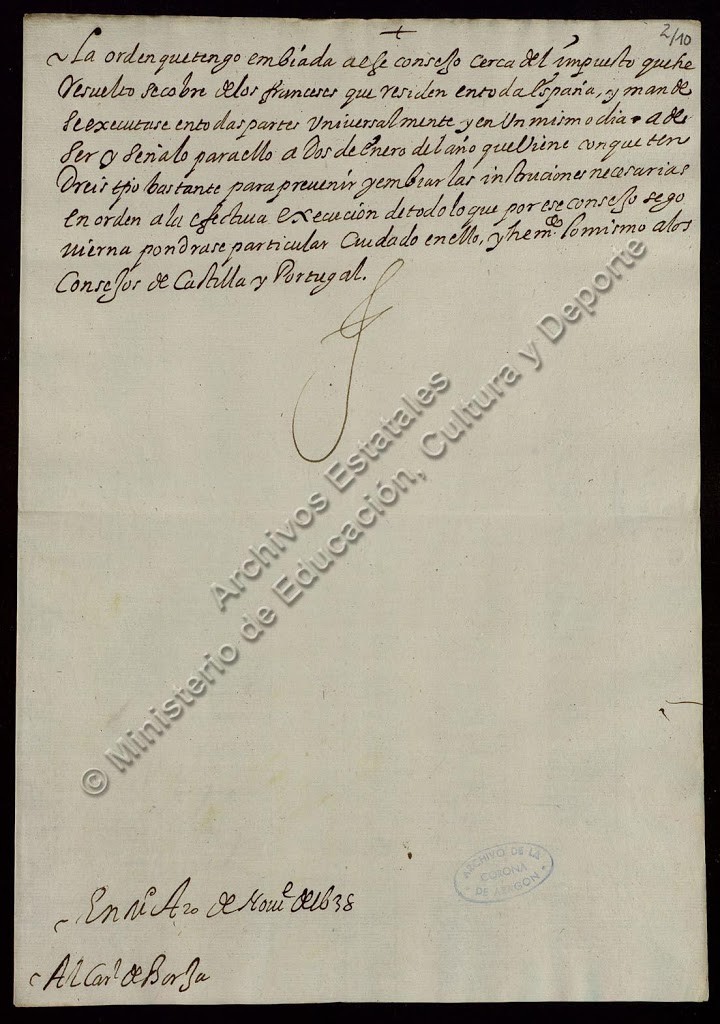 +
2/10
La orden que tengo embiada a ese consejo cerca del impuesto que he
resuelto se cobre de los franceses que residen en toda España, y mande
se executase en todas partes Universalmente y en Un mismo dia a de
ser y señalo para ello a Dos de Enero del año que Viene con que ten
Dreis tpo bastante para prevenir y embiar las instruciones necesarias
En orden a la efectiva execución de todo lo que por ese consejo se go
vierna pondrase particular Cuidado en ello, y he mdo lo mismo a los
Consejos de Castilla y Portugal.
© Ministerio de Educación, Cultura y Deporte
Archivos Estatales
ARCHIVO DE LA
CORONA
DE ARAGON
En de Nove de 1638
Al Carl de Borja